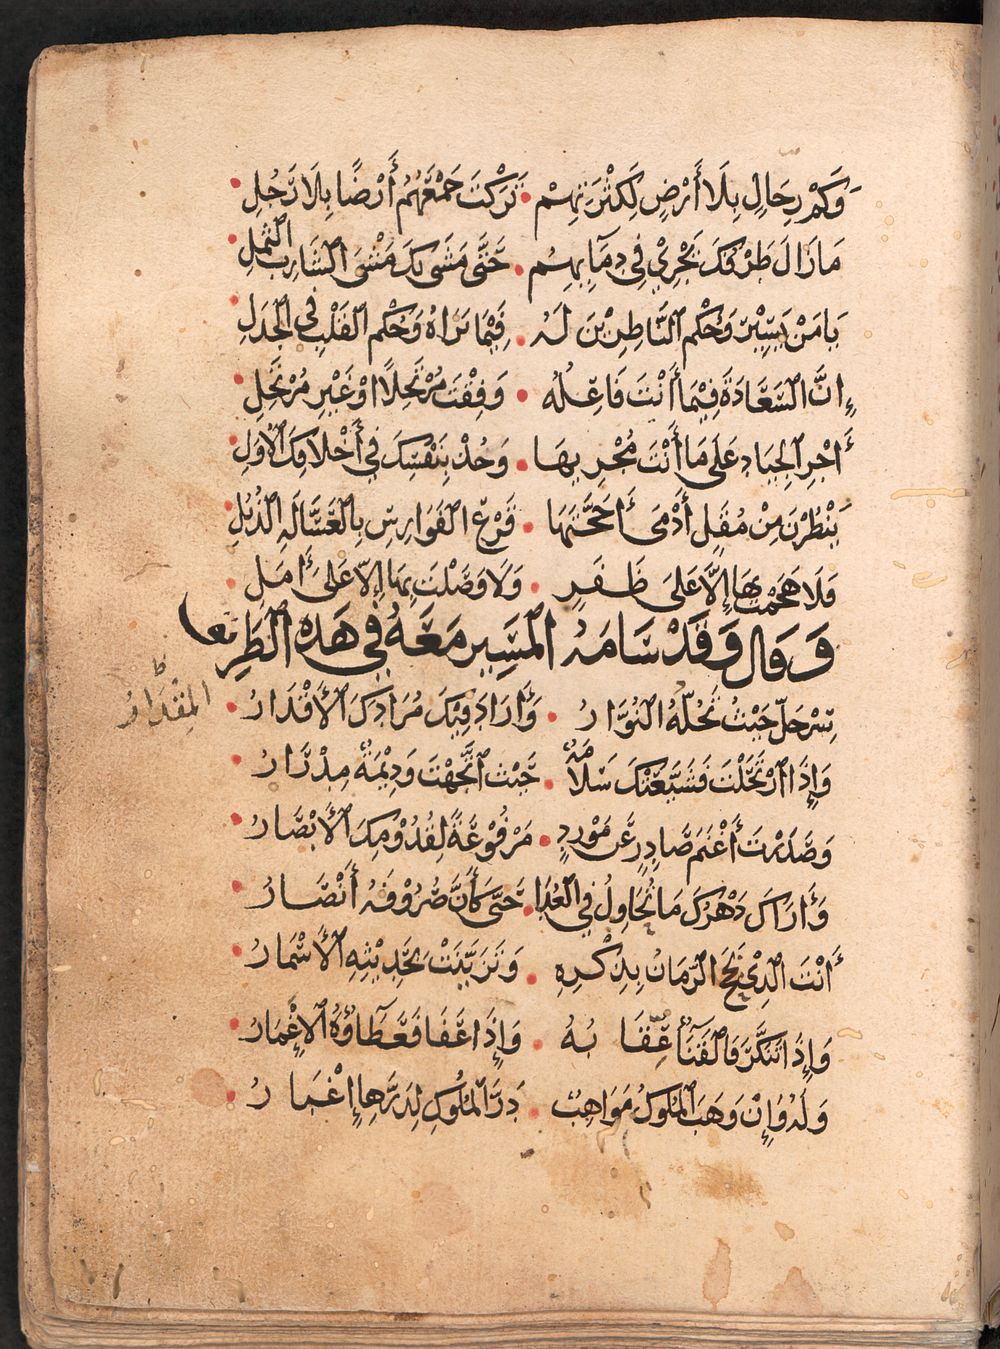 وَكَمْ رِجَالٍ بِلَا أَرْضٍ لِكَثْرَتِهِمْ • تَرَكْتَ جَمْعَهُمُ أَرْضًا بِلَا رَجُلِ •
مَازَالَ طَرْفُكَ يَجْرِيْ فِي دِمَآئِهِمِ • حَتَّى مَشَى بِكَ مَشْىَ الشَّارِبِ الثَّمِلِ •
يَا مَنْ يَسِيْرُ وَحُكْمُ النَّاظِرَيْنِ لَهُ • فِيْمَا يَرَاهُ وَحُكْمُ الْقَلْبِ فِي الْجَدَلِ •
إِنَّ السَّعَادَةَ فِيْمَا أَنْتَ فَاعِلُهُ • وَفِقْتَ مُرْتَحِلًا اوْ غَيْرَ مُرْتَحِلِ •
أَجْرِ الْجِيَادَ عَلَى مَا أَنْتَ مُجْرِيهَا • وَخُذْ بِنَفْسِكَ فِي أَخْلَاقِكَ الْأُوَلِ •
يَنْظُرْنَ مِنْ مُقَلٍ أَدْمَى أَحِجَّتَهَا • قَرْعُ الْفَوَارِسِ بِالْعَسَّالَةِ الذُّبُلِ •
فَلَا هَجَمْتَ بِهَا إِلَّا عَلَى ظَفَرٍ • وَلَا وَصَلْتَ بِهَا إِلَّا عَلَى أَمَلِ •
وَقَالَ وَقَدْ سَامَهُ الْمَسِيرَ مَعَهُ فِي هَذِهِ الطَّرِيق
سِرْ حَلَّ حَيْثُ تَحُلُّهُ النُّوَّارُ • وَأَرَادَ فِيْكَ مُرَادَكَ الْأَقْدَارُ •
الْمِقْدَارُ
وَإِذَا ارْتَحَلْتَ فَشَيَّعَتْكَ سَلَامَةٌ • حَيْثُ اتَّجَهْتَ وَدِيْمَةٌ مِدْرَارُ •
وَصَدَرْتَ أَغْنَمَ صَادِرٍ عَنْ مَوْرِدٍ • مَرْفُوْعَةً لِقُدُوْمِكَ الْأَبْصَارُ •
وَأَرَاكَ دَهْرُكَ مَا تُحَاوِلُ فِي الْعُدَا • حَتَّى كَأَنَّ صُرُوْفَهُ أَنْصَارُ •
أَنْتَ الَّذِيْ بَجَحَ الزَّمَانُ بِذِكْرِهِ • وَتَزَيَّنَتْ بِحَدِيْثِهِ الْأَسْمَارُ •
وَإِذَا تَنَكَّرَ فَالْفَنَآءُ عِقَابُهُ • وَإِذَا عَفَا فَعَطَآؤُهُ الْأَعْمَارُ •
وَلَهُ وَإِنْ وَهَبَ الْمُلُوكُ مَوَاهِبٌ • دَرُّ الْمُلُوكِ لِدَرِّهَا إِغْمَارُ •